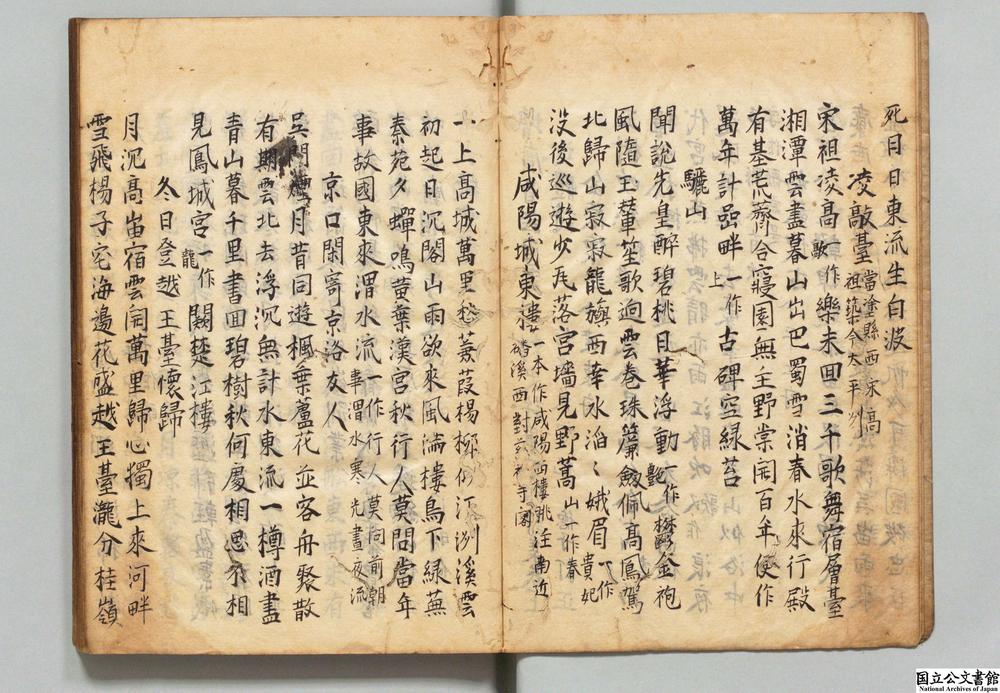 死日日東流生白波
凌歊臺 當塗縣西宋高祖築今太平州
宋祖凌高一作歊樂未回三千歌舞宿層臺
湘潭雲盡暮山出巴蜀雪消春水來行殿
有基荒薺合寢園無主野棠開百年便作
萬年計嵒畔一作上古碑空綠苔
驪山
聞說先皇醉碧桃日華浮動一作艷鬱金袍
風隨玉輦笙歌迥雲卷珠簾劔佩高鳳駕
北歸山寂寂龍旗西幸水滔〻娥眉一作貴妃
沒後巡遊少瓦落宮墻見野蒿山一作春
咸陽城東樓 一本作咸陽西樓眺注南近磻溪西對
一上高城萬里愁蒹葭楊柳似汀洲溪雲
初起日沉閣山雨欲來風滿樓鳥下綠蕪
秦苑夕蟬鳴黃葉漢宮秋行人莫問當年
事故國東來渭水流一作行人莫向前朝事渭水寒光晝夜流
京口閑寄京洛友人
吳門煙月昔同遊楓葉蘆花並客舟聚散
有期雲北去浮沉無計水東流一樽酒盡
青山暮千里書回碧樹秋何處相思不相
見鳳城宮一作龍闕楚江樓
冬日登越王臺懷歸
月沉高岫宿雲開萬里歸心獨上來河畔
雪飛楊子宅海邊花盛越王臺瀧分桂嶺
国立公文書館
National Archives of Japan